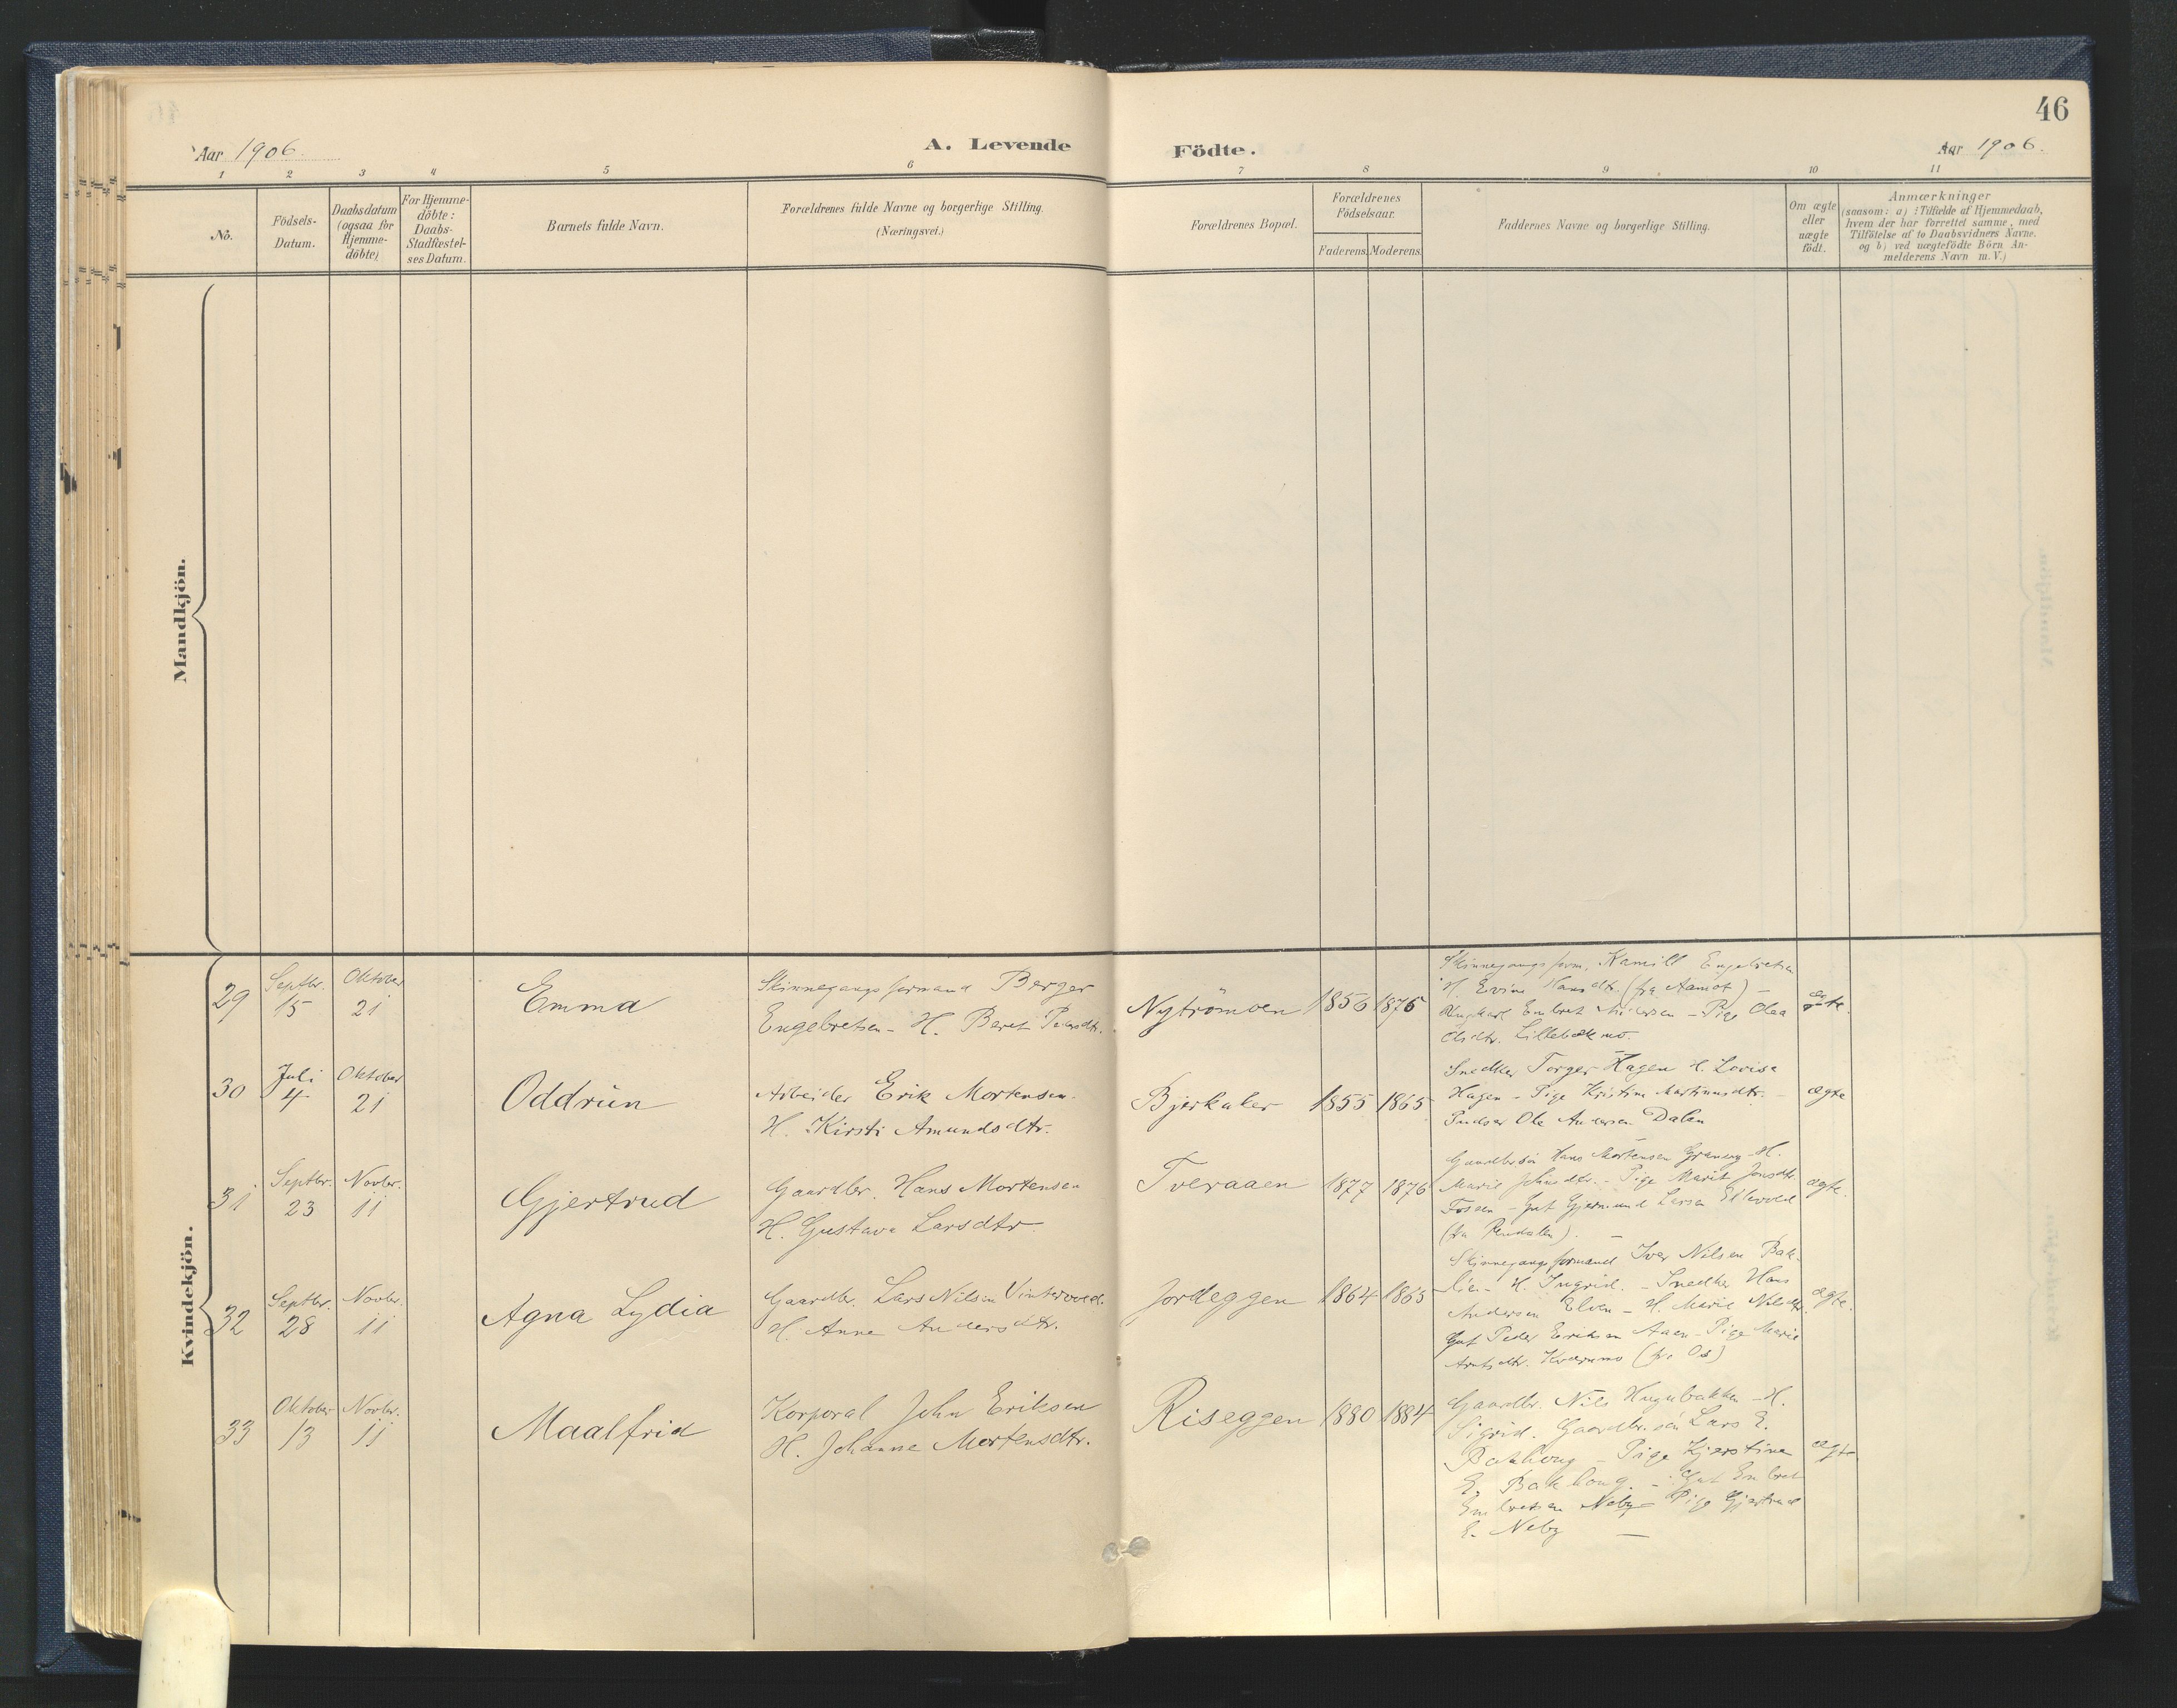 46
Aar 1906.
A. Levende Födte.
Aar 1906.
1 2 3 4 5 6 7 8 9 10 11
No.
Födsels-
Datum.
Daabsdatum
(ogsaa for
Hjemme-
döbte)
For Hjemme-
döbte:
Daabs-
Stadfæstel-
ses Datum.
Barnets fulde Navn.
Forældrenes fulde Navne og borgerlige Stilling.
(Næringsvei.)
Forældrenes Bopæl.
Forældrenes
Födselsaar.
Faderens. Moderens.
Faddernes Navne og borgerlige Stilling.
Om ægte
eller
uægte
födt.
Anmærkninger
(saasom: a) i Tilfælde af Hjemmedaab,
hvem der har forrettet samme, med
Tilföielse af to Daabsvidners Navne.
og b) ved uægtefödte Börn An-
melderens Navn m.V.)
Mandkjön.
Kvindekjön.
29
Septbr.
15
Oktober
21
Emma
Skinnegangsformand Berger
Engebretsen - H. Beret Pedersdtr.
Nytrömoen
1856 1876
Skinnegangsform. Kamill Engebretsen
H. Evine Hansdtr. (fra Aamot) -
Embret - Pige Olea
Olsdtr. Lillebækmo.
ægte.
30
Juli
4
Oktober
21
Oddrun
Arbeider Erik Mortensen.
H. Kirsti Amundsdtr.
Bjerkaker
1855 1865
Snedker Torger Hagen H. Lovise
Hagen - Pige Kristine Martinusdtr. -
Pudser Ole Andersen Dalen
ægte
31
Septbr.
23
Novbr.
11
Gjertrud
Gaardbr. Hans Mortensen
H. Gustava Larsdtr.
Tveraaen
1877 1876
Gaardbrsön Hans Mortensen - H.
Marie Johnsdtr. - Pige Marit Jonsdtr.
Fossen - Gut Gjermund Larsen Ellevold
(fra Rendalen). -
ægte.
32
Septbr.
28
Novbr.
11
Agna Lydia
Gaardbr. Lars Nilsen Vintervold.
H. Anne Andersdtr.
Jordeggen
1864 1865
Skinnegangsformand Iver Nilsen Bak-
lien - H. Ingrid. - Snedker Hans
Andersen Elven - H. Marie Nilsdtr.
Gut Peder Eriksen Aaen - Pige Marie
Arntsdtr. Kværnmo (fra Os)
ægte.
33
Oktober
13
Novbr.
11
Maalfrid
Korporal John Eriksen
H. Johanne Mortensdtr.
Riseggen
1880 1884
Gaardbr. Nils Haugubakken - H.
Sigrid. Gaardbr.sön Lars E.
Bakhoug - Pige Kjerstine
E. Bakhoug. - Gut Embret
Embretsen Neby - Pige Gjertrud
E. Neby -
ægte.